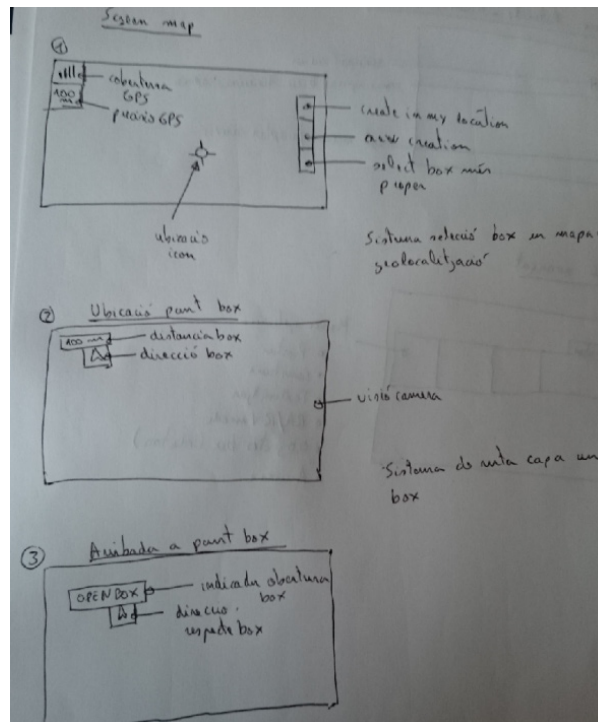 Screen map
①
cobertura
GPS
100
precisió GPS
create in my location
creation
select box més
proper
ubicació
icon
Sistema selecció box en mapa
geolocalització
② Ubicació punt box
100 m
distancia box
direcció box
visió camera
Sistema de ruta cap a un
box
③ Arribada a punt box
OPEN BOX
indicador obertura
box
direcció
respecte box